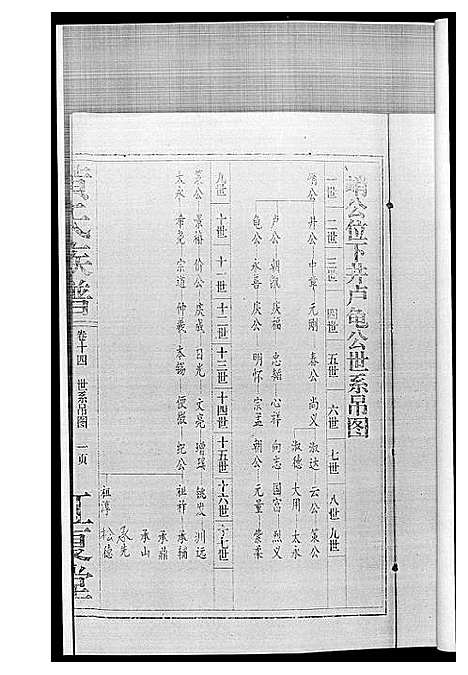 公位下井卢龟公世系吊图
一世 二世 三世 四世 五世 六世 七世 八世 九世
公 井公 中章 元刚 泰公 尚义 淑达 云公 策公
淑德 大用 太永
卢公 朝 庆福 忠 心祥 向志 国富 烈义
龟公 永喜 庆公 明怀 宗孟 朝公 元量 崇柔
九世 十世 十一世 十二世 十三世 十四世 十五世 十六世 十七世
策公 景 俞公 庆成 日光 文亮 增 发 洲远
太永 希尧 宗道 仲羲 本锡 便 纪公 祖祥 承辅
承鼎
承山
承先
祖淳 松德
氏族谱
卷十四 世系吊图 一页
江夏堂